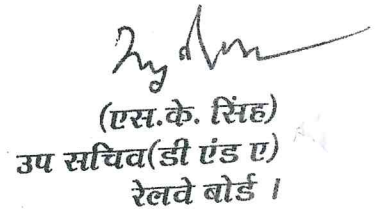 (एस.के. सिंह)
उप सचिव(डी एंड ए)
रेलवे बोर्ड ।